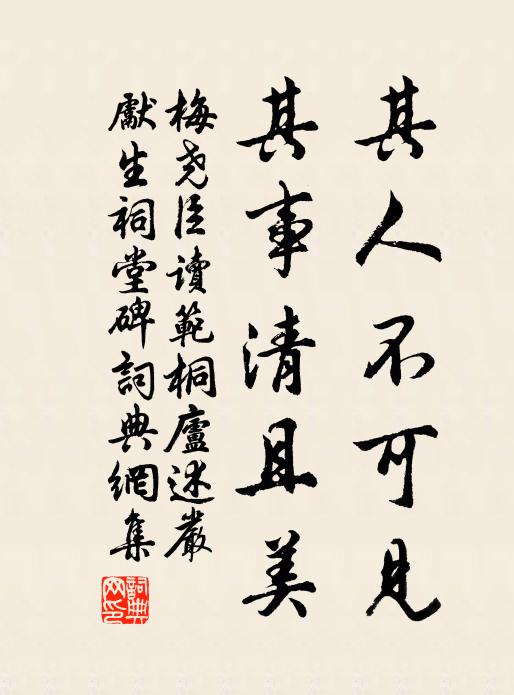 其人不可見
其事清且美
梅堯臣讀範桐廬述嚴
獻生祠堂碑詞典網集
詞典網印